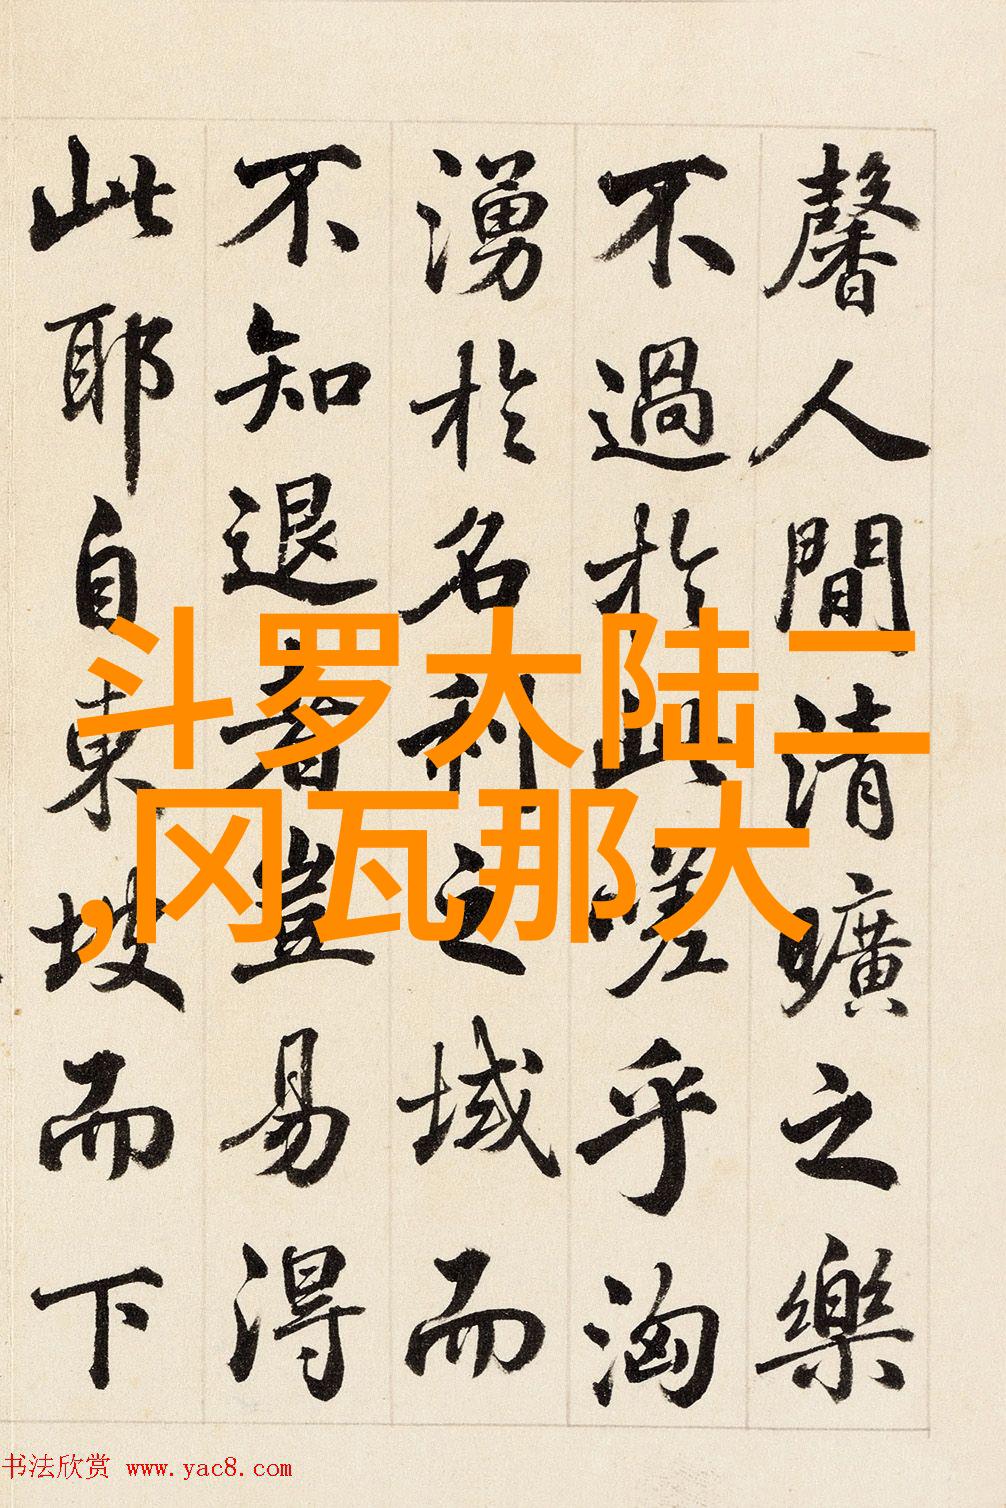 馨人間清曠之樂
不過於此嗟乎洶
湧於名利之域而
不知退者豈易得
此耶自東坡而下
斗罗大陆二
,冈瓦那大
书法欣赏 www.yac8.com